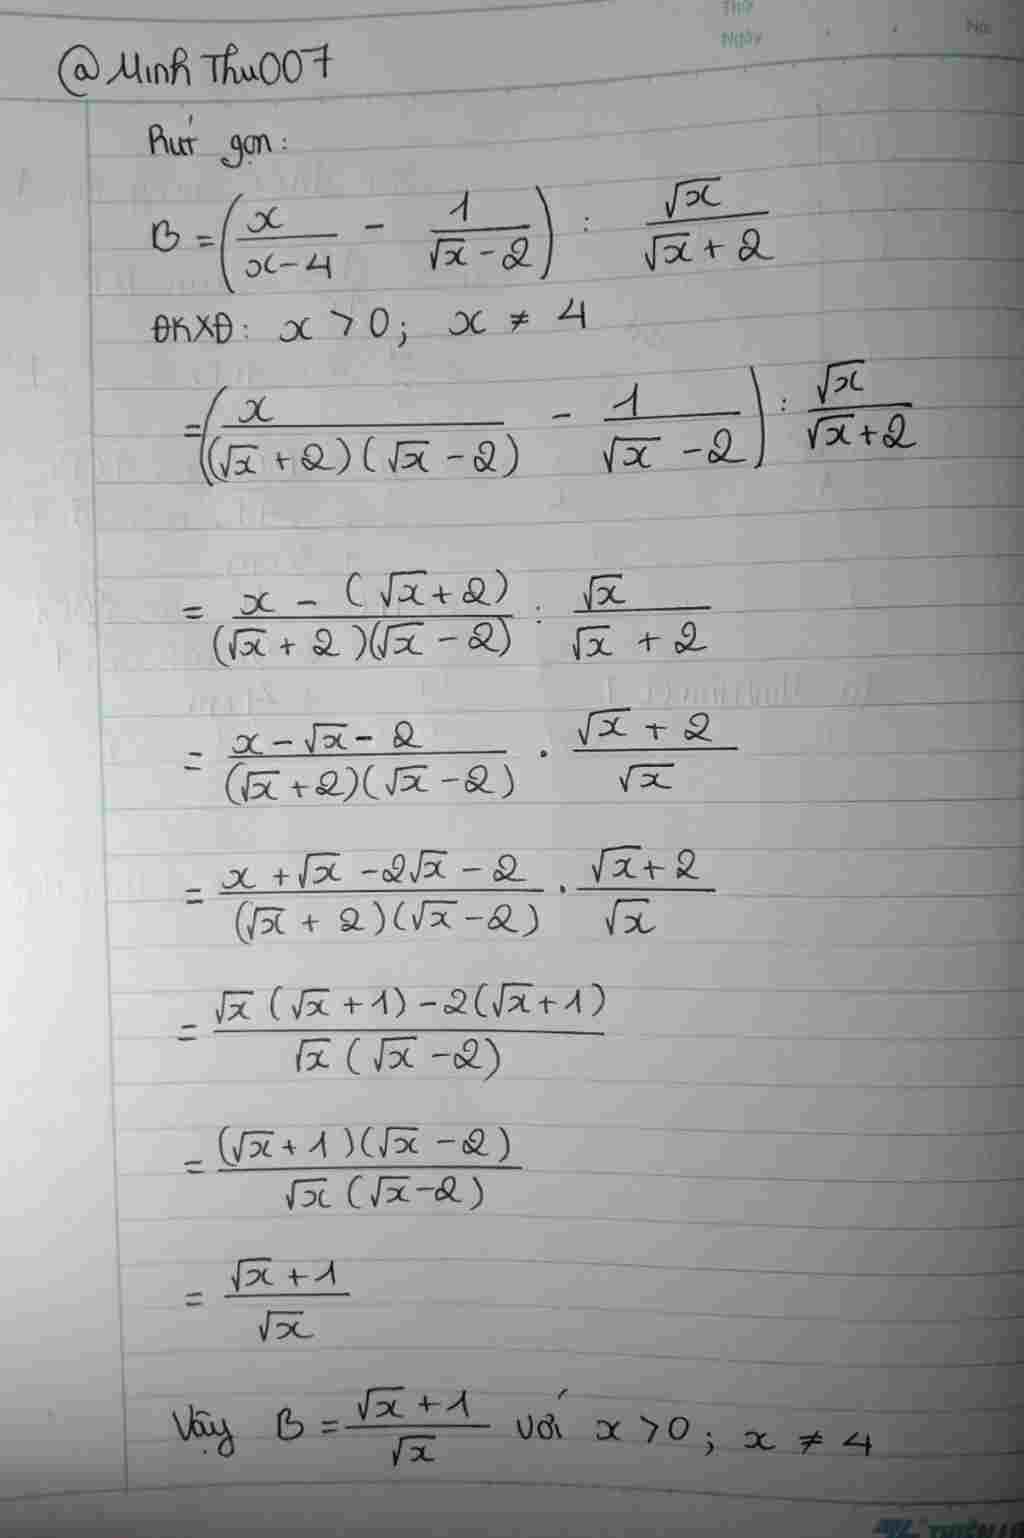 Thứ
Ngày . . No:
@MinhThu007
Rút gọn:
B = (x/(x-4) - 1/(√x-2)) : √x/(√x+2)
ĐKXĐ: x > 0; x ≠ 4
= (x/((√x+2)(√x-2)) - 1/(√x-2)) : √x/(√x+2)
= (x-(√x+2))/((√x+2)(√x-2)) : √x/(√x+2)
= (x-√x-2)/((√x+2)(√x-2)) . (√x+2)/√x
= (x+√x-2√x-2)/((√x+2)(√x-2)) . (√x+2)/√x
= (√x(√x+1)-2(√x+1))/(√x(√x-2))
= ((√x+1)(√x-2))/(√x(√x-2))
= (√x+1)/√x
Vậy B = (√x+1)/√x với x > 0; x ≠ 4